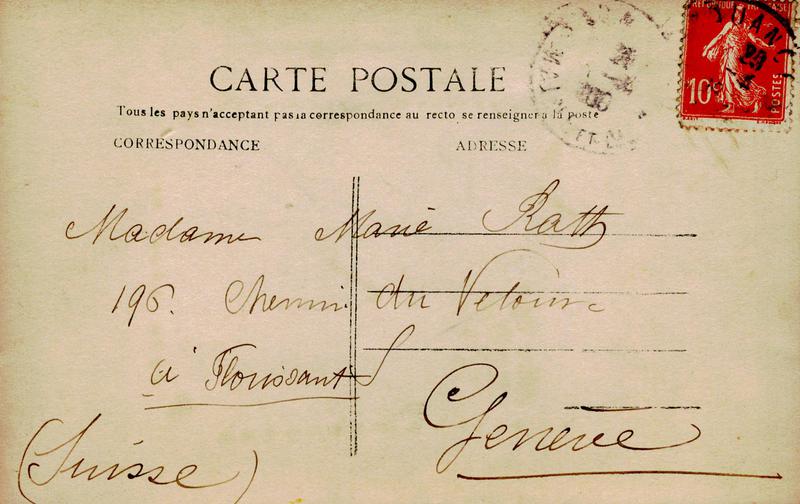 CARTE POSTALE
Tous les pays n'acceptant pas la correspondance au recto se renseigner à la poste
CORRESPONDANCE ADRESSE
Madame Marie Rath
196. Chemin du Velours
à Florissant
Genève
(Suisse)
10
POSTES